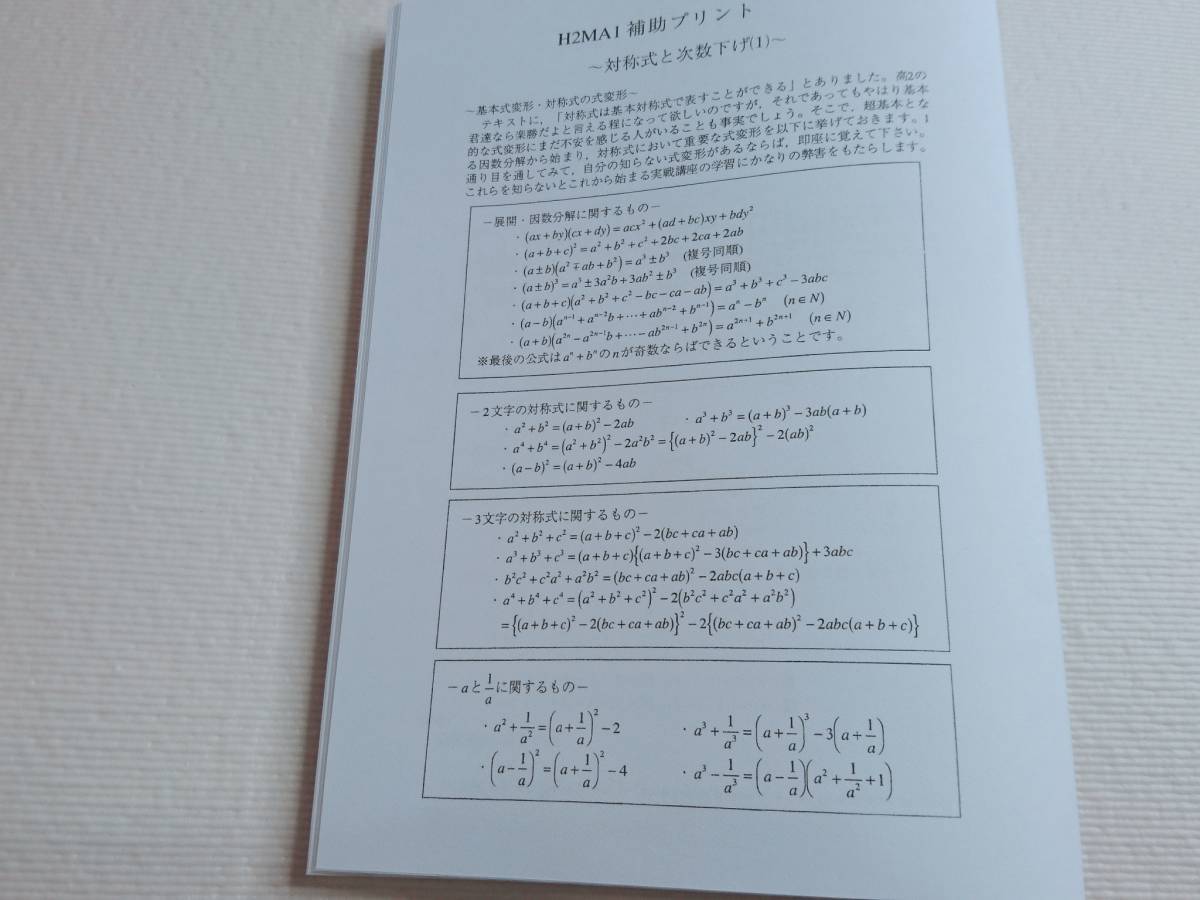 H2MA1 補助プリント
～対称式と次数下げ(1)～
～基本式変形・対称式の式変形～
テキストに，「対称式は基本対称式で表すことができる」とありました。高2の
君達なら楽勝だよと言える程になって欲しいのですが，それであってもやはり基本
的な式変形にまだ不安を感じる人がいることも事実でしょう。そこで，超基本とな
る因数分解から始まり，対称式において重要な式変形を以下に挙げておきます。1
通り目を通してみて，自分の知らない式変形があるならば，即座に覚えて下さい。
これらを知らないとこれから始まる実戦講座の学習にかなりの弊害をもたらします。
－展開・因数分解に関するもの－
・(ax+by)(cx+dy)=acx²+(ad+bc)xy+bdy²
・(a+b+c)²=a²+b²+c²+2bc+2ca+2ab
・(a±b)(a²∓ab+b²)=a³±b³ (複号同順)
・(a±b)³=a³±3a²b+3ab²±b³ (複号同順)
・(a+b+c)(a²+b²+c²-bc-ca-ab)=a³+b³+c³-3abc
・(a-b)(aⁿ⁻¹+aⁿ⁻²b+⋯+abⁿ⁻²+bⁿ⁻¹)=aⁿ-bⁿ (n∈N)
・(a+b)(a²ⁿ-a²ⁿ⁻¹b+⋯-ab²ⁿ⁻¹+b²ⁿ)=a²ⁿ⁺¹+b²ⁿ⁺¹ (n∈N)
※最後の公式はaⁿ+bⁿのnが奇数ならばできるということです。
－2文字の対称式に関するもの－
・a²+b²=(a+b)²-2ab ・a³+b³=(a+b)³-3ab(a+b)
・a⁴+b⁴=(a²+b²)²-2a²b²={(a+b)²-2ab}²-2(ab)²
・(a-b)²=(a+b)²-4ab
－3文字の対称式に関するもの－
・a²+b²+c²=(a+b+c)²-2(bc+ca+ab)
・a³+b³+c³=(a+b+c){(a+b+c)²-3(bc+ca+ab)}+3abc
・b²c²+c²a²+a²b²=(bc+ca+ab)²-2abc(a+b+c)
・a⁴+b⁴+c⁴=(a²+b²+c²)²-2(b²c²+c²a²+a²b²)
={(a+b+c)²-2(bc+ca+ab)}²-2{(bc+ca+ab)²-2abc(a+b+c)}
－aと1/aに関するもの－
・a²+1/a²=(a+1/a)²-2 ・a³+1/a³=(a+1/a)³-3(a+1/a)
・(a-1/a)²=(a+1/a)²-4 ・a³-1/a³=(a-1/a)(a²+1/a²+1)